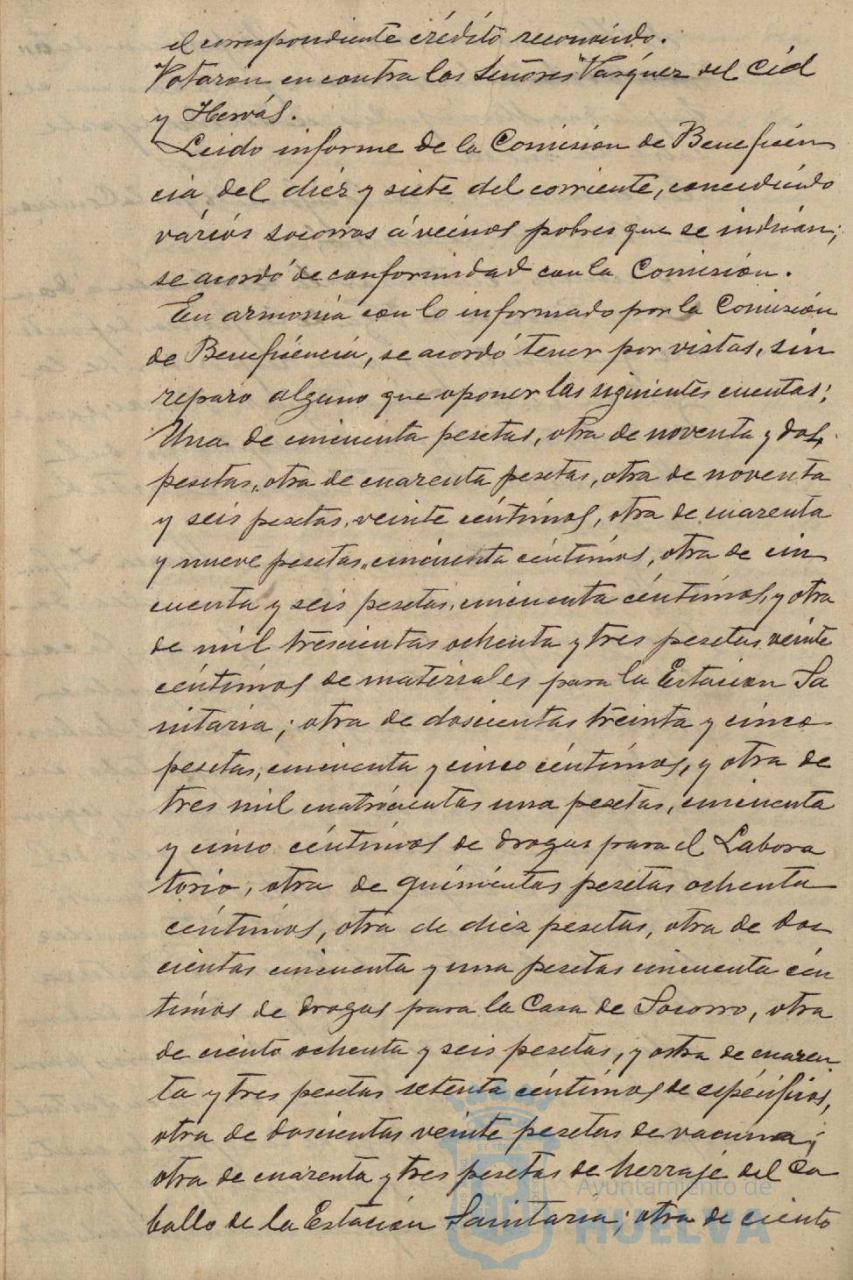 el correspondiente crédito reconocido.
Votaron en contra los Señores Vázquez del Cid
y Hervás.
Leido informe de la Comisión de Beneficen
cia del diéz y siete del corriente, concediendo
varios socorros á vecinos pobres que se indican;
se acordó de conformidad con la Comisión.
En armonia con lo informado por la Comisión
de Beneficéncia, se acordó tener por vistas, sin
reparo alguno que oponer las siguientes cuentas;
Una de cincuenta pesetas, otra de noventa y dos,
pesetas, otra de cuarenta pesetas, otra de noventa
y seis pesetas, veinte céntimos, otra de cuarenta
y nueve pesetas, cincuenta céntimos, otra de cin
cuenta y seis pesetas, cincuenta céntimos, y otra
de mil trescientas ochenta y tres pesetas veinte
céntimos de materiales para la Estacion Sa
nitaria; otra de doscientas treinta y cinco
pesetas, cincuenta y cinco céntimos, y otra de
tres mil cuatrocientas una pesetas, cincuenta
y cinco céntimos de drogas para el Labora
torio, otra de quinientas pesetas ochenta
céntimos, otra de diez pesetas, otra de dos
cientas cincuenta y una pesetas cincuenta cén
timos de drogas para la Casa de Socorro, otra
de ciento ochenta y seis pesetas, y ostra de cuaren
ta y tres pesetas setenta céntimos de espécificos,
otra de doscientas veinte pesetas de vacuna;
otra de cuarenta y tres pesetas de herraje del Ca
ballo de la Estación Sanitaria; otra de ciento
Ayuntamiento de
HUELVA